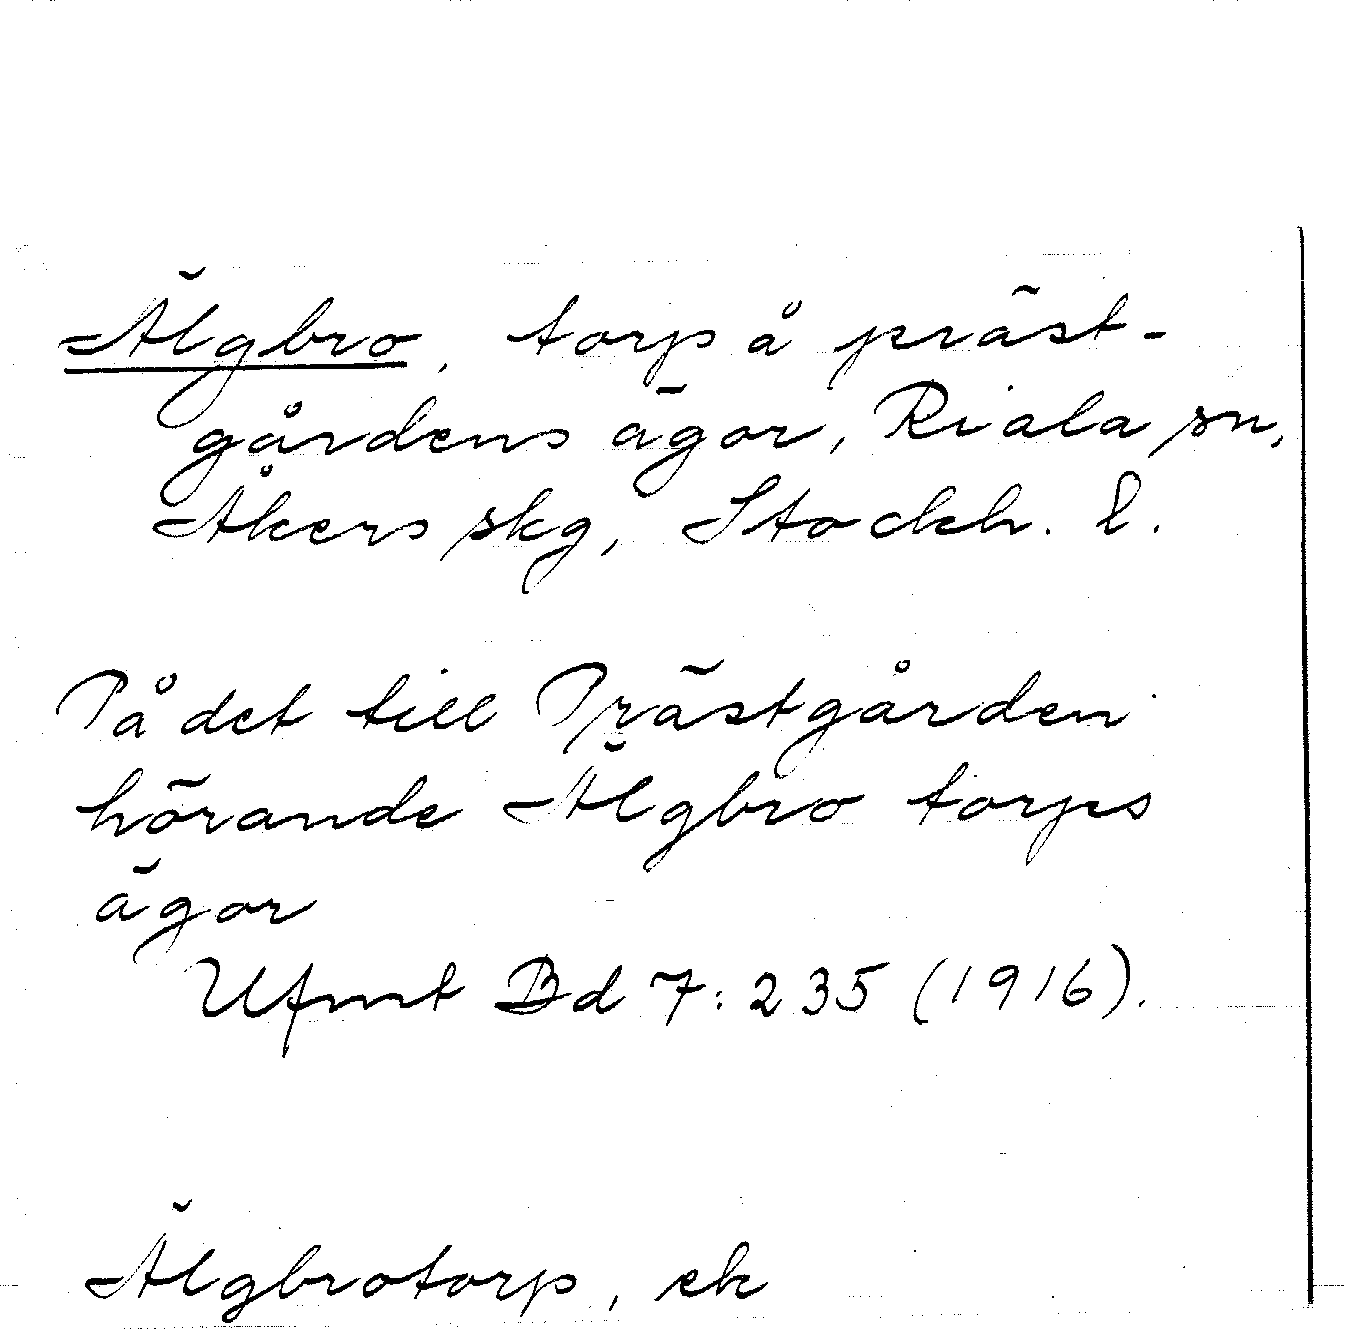 Älgbro, torp å präst-
gårdens ägor, Riala sn,
Åkers skg, Stockh. l.
På det till Prästgården
hörande Älgbro torps
ägor
Ufmt Bd 7:235 (1916).
Älgbrotorp, ek